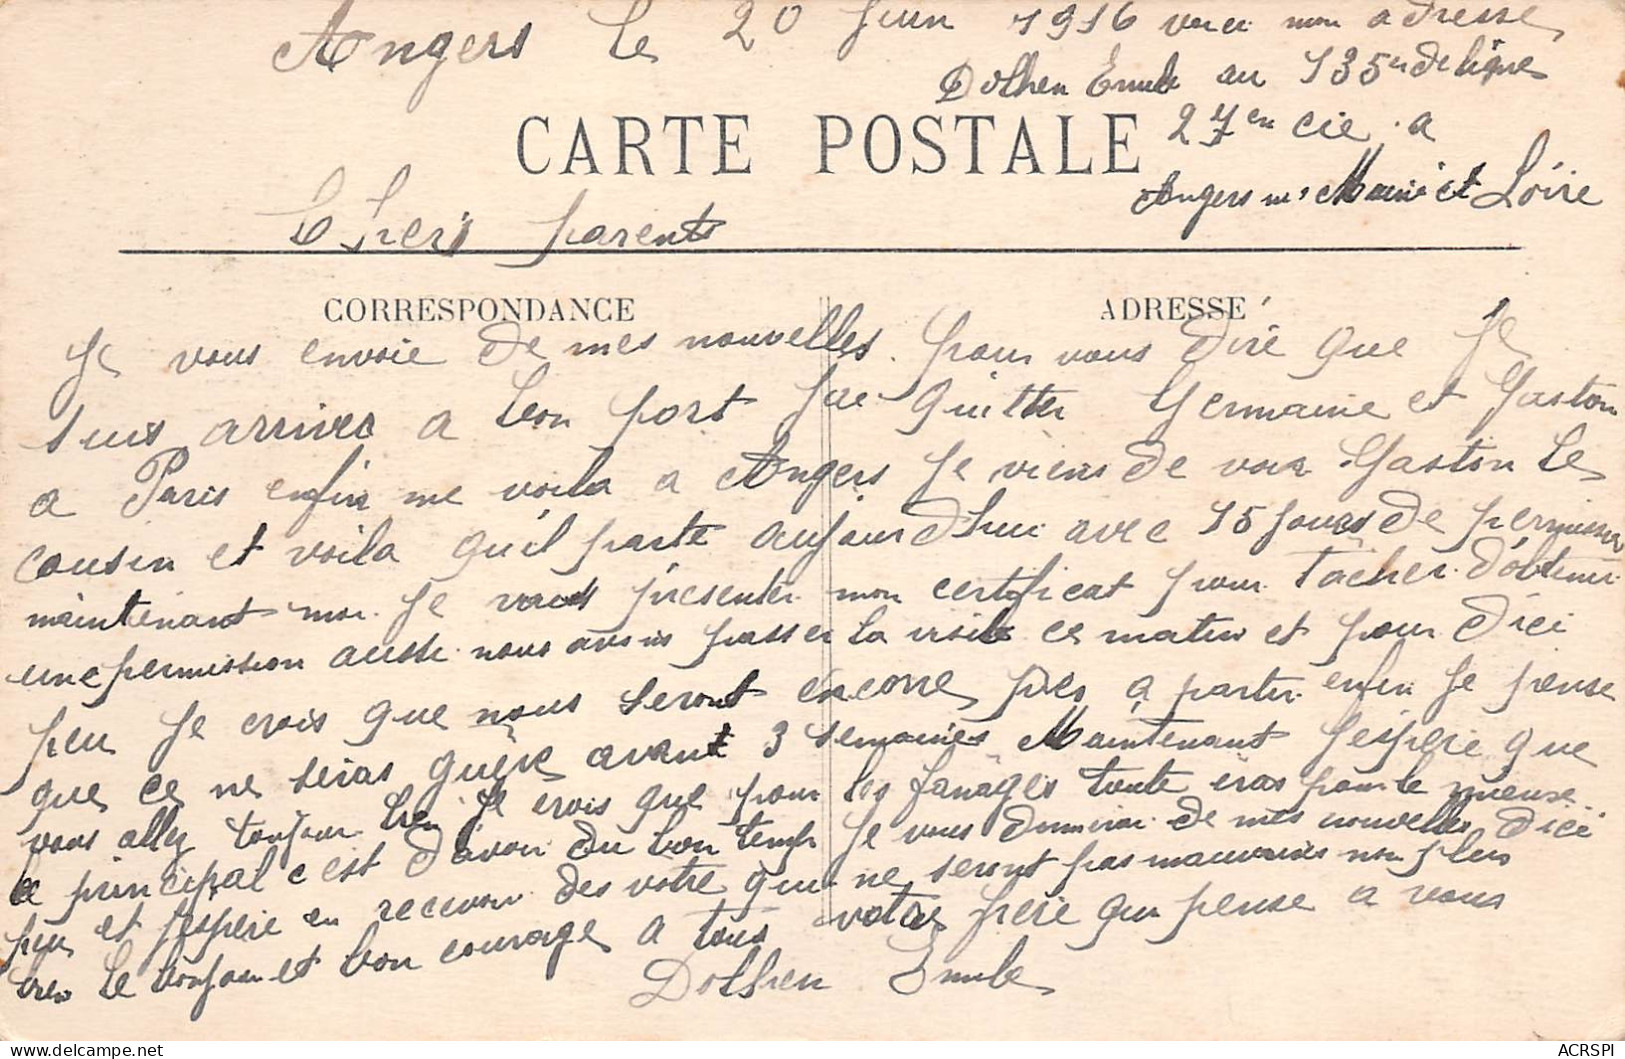 Angers le 20 Juin 1916 voici mon adresse
Dolhen Emile au 135 de ligne
27en Cie a
CARTE POSTALE
Angers Maine et Loire
Chers parents
CORRESPONDANCE
ADRESSE
Je vous envoie de mes nouvelles pour vous dire que Je
suis arrivee a bon port J'ai quitter Germaine et Gaston
a Paris enfin me voila a Angers Je viens de voir Gaston le
cousin et voila qu'il parte aujourd'hui avec 15 jours de permission
maintenant moi Je vais présenter mon certificat pour Tàcher d'obtenir
une permission aussi nous avons passer la visite ce matin et pour d'ici
peu Je crois que nous seront encore pres a partir enfin Je pense
que ce ne seras guère avant 3 semaines Maintenant J'espère que
vous allez toujour bien Je crois que pour les fanages toute iras pour le mieuse
le principal c'est d'avoir du bon temps Je vous donnerai de mes nouvelles d'ici
peu et J'espère en recevoir des votre qui ne seront pas mauvaises non plus
bien le bonjour et bon courage a tous votre frere qui pense a vous
Dolhen Emile
ACRSPI